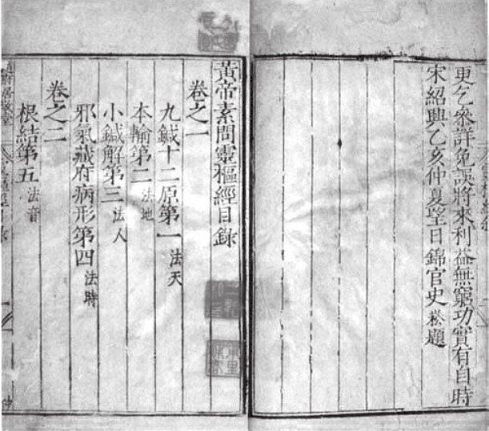 更乞參詳免誤將來利益無窮功實有自時
宋紹興乙亥仲夏望日錦官史 崧題
黃帝素問靈樞經目錄
卷之一
九鍼十二原第一 法天
本輸第二 法地
小鍼解第三 法人
邪氣藏府病形第四 法時
卷之二
根結第五 法音